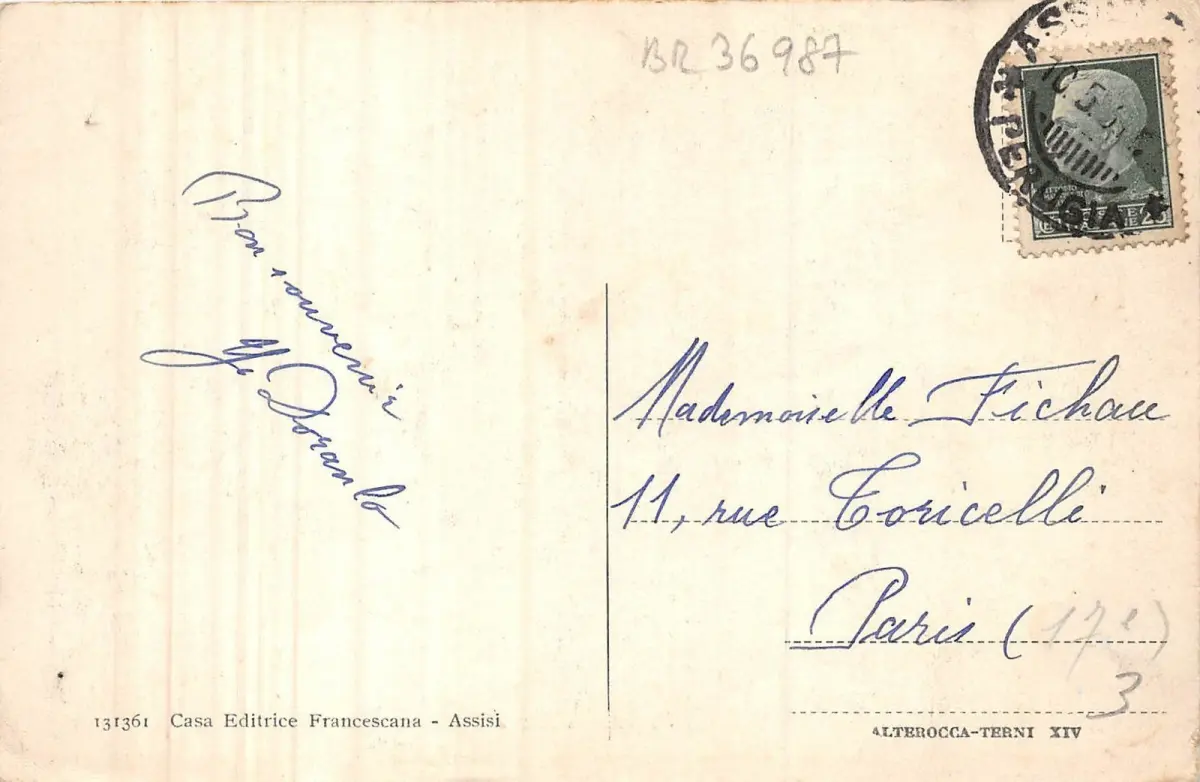 BR 36987
ASSISI
10.5.
* PERUGIA *
POSTE
ITALIANE 25
Bon souvenir
Y. Doranlo
Mademoiselle Fichau
11, rue Toricelli
Paris (17e)
3
131361 Casa Editrice Francescana - Assisi
ALTEROCCA-TERNI XIV